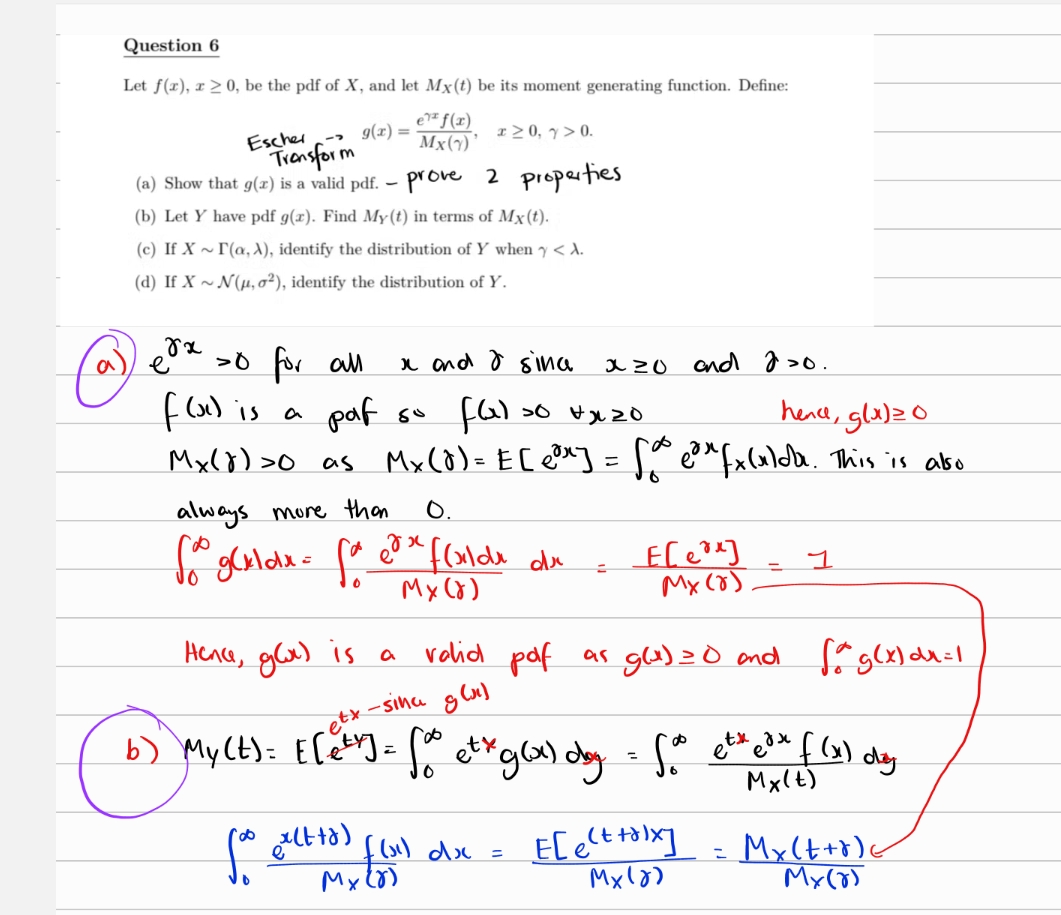 Question 6
Let f(x), x ≥ 0, be the pdf of X, and let M_X(t) be its moment generating function. Define:
Escher Transform → g(x) = e^{γx} f(x) / M_X(γ), x ≥ 0, γ > 0.
(a) Show that g(x) is a valid pdf. – prove 2 properties
(b) Let Y have pdf g(x). Find M_Y(t) in terms of M_X(t).
(c) If X ∼ Γ(α, λ), identify the distribution of Y when γ < λ.
(d) If X ∼ N(μ, σ²), identify the distribution of Y.
a) e^{γx} >0 for all x and γ since x≥0 and γ>0.
f(x) is a pdf so f(x) >0 ∀x≥0 hence, g(x)≥0
M_X(γ)>0 as M_X(γ) = E[e^{γx}] = ∫_0^∞ e^{γx} f_X(x)dx. This is also
always more than 0.
∫_0^∞ g(x)dx = ∫_0^∞ e^{γx} f(x)dx / M_X(γ) dx = E[e^{γx}] / M_X(γ) = 1
Hence, g(x) is a valid pdf as g(x)≥0 and ∫_0^∞ g(x)dx=1
e^{tx} – since g(x)
b) M_Y(t) = E[e^{tY}] = ∫_0^∞ e^{tx} g(x) dy = ∫_0^∞ e^{tx} e^{γx} f(x) / M_X(t) dy
∫_0^∞ e^{x(t+γ)} f(x) / M_X(γ) dx = E[e^{(t+γ)X}] / M_X(γ) = M_X(t+γ) / M_X(γ)